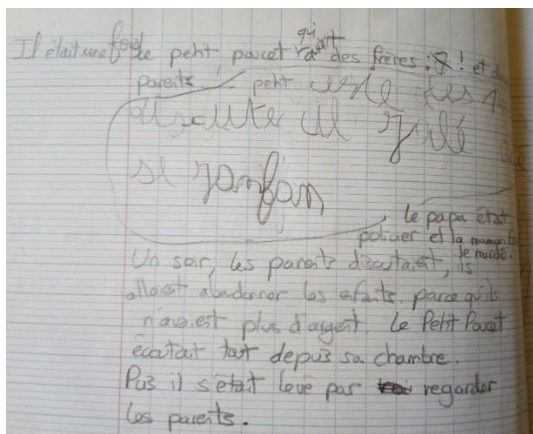 qui
Il était une fois le petit poucet avait des frères : 8 ! et
parents petit
discute il
si zanfan
le papa était
policier et la maman
Un soir, les parents discutaient, ils
allaient abandonner les enfants. parce qu'ils
n'avaient plus d'argent. Le Petit Poucet
écoutait tout depuis sa chambre.
Puis il s'était levé par regarder
les parents.